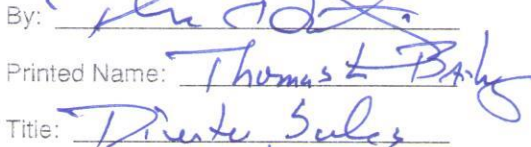 By:
Printed Name: Thomas L Baily
Title: Director, Sales